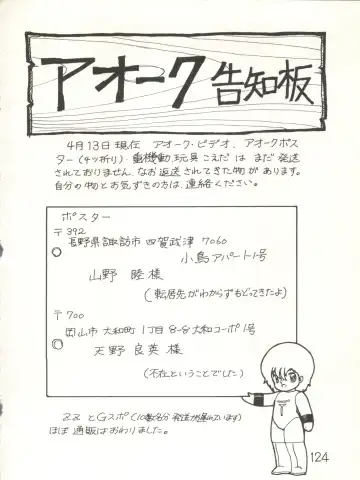 アオーク 告知板
4月13日現在 アオーク・ビデオ、アオークポス
ター(4ッ折り)・重機動玩具 こえだ は まだ発送
されておりません。なお返送されてきた物があります。
自分の物とお気ずきの方は、連絡ください。
ポスター
〒392
長野県諏訪市四賀武津 7060
小鳥アパート1号
山野 睦 様
(転居先がわからずもどってきたよ)
〒700
岡山市 大和町 1丁目 8-8 大和コーポ 1号
天野 良英 様
(不在ということでした)
ZZ とGスポ(10数名分 発送が遅れています)
ほぼ 通販はおわりました。
124